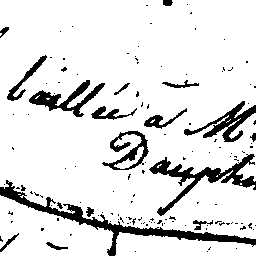 baillée à M
Dauphin